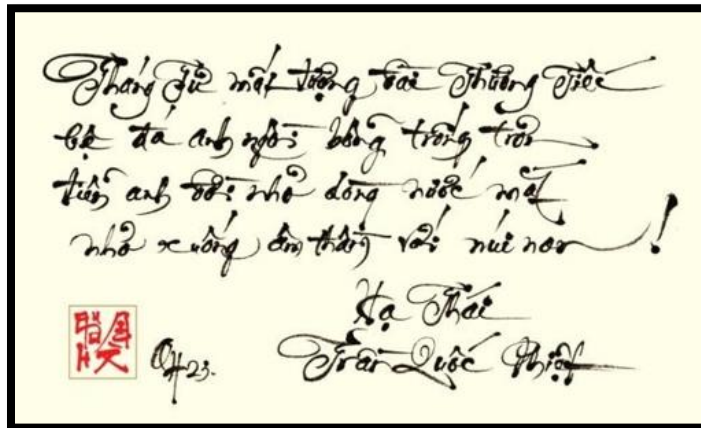 Tháng Tư mất tượng đài Thương Tiếc
bệ đá anh ngồi bỗng trống trơn
tiễn anh tôi nhỏ dòng nước mắt
nhỏ xuống âm thầm với núi non!
Hạ Thái
Trần Quốc Phiệt
23.